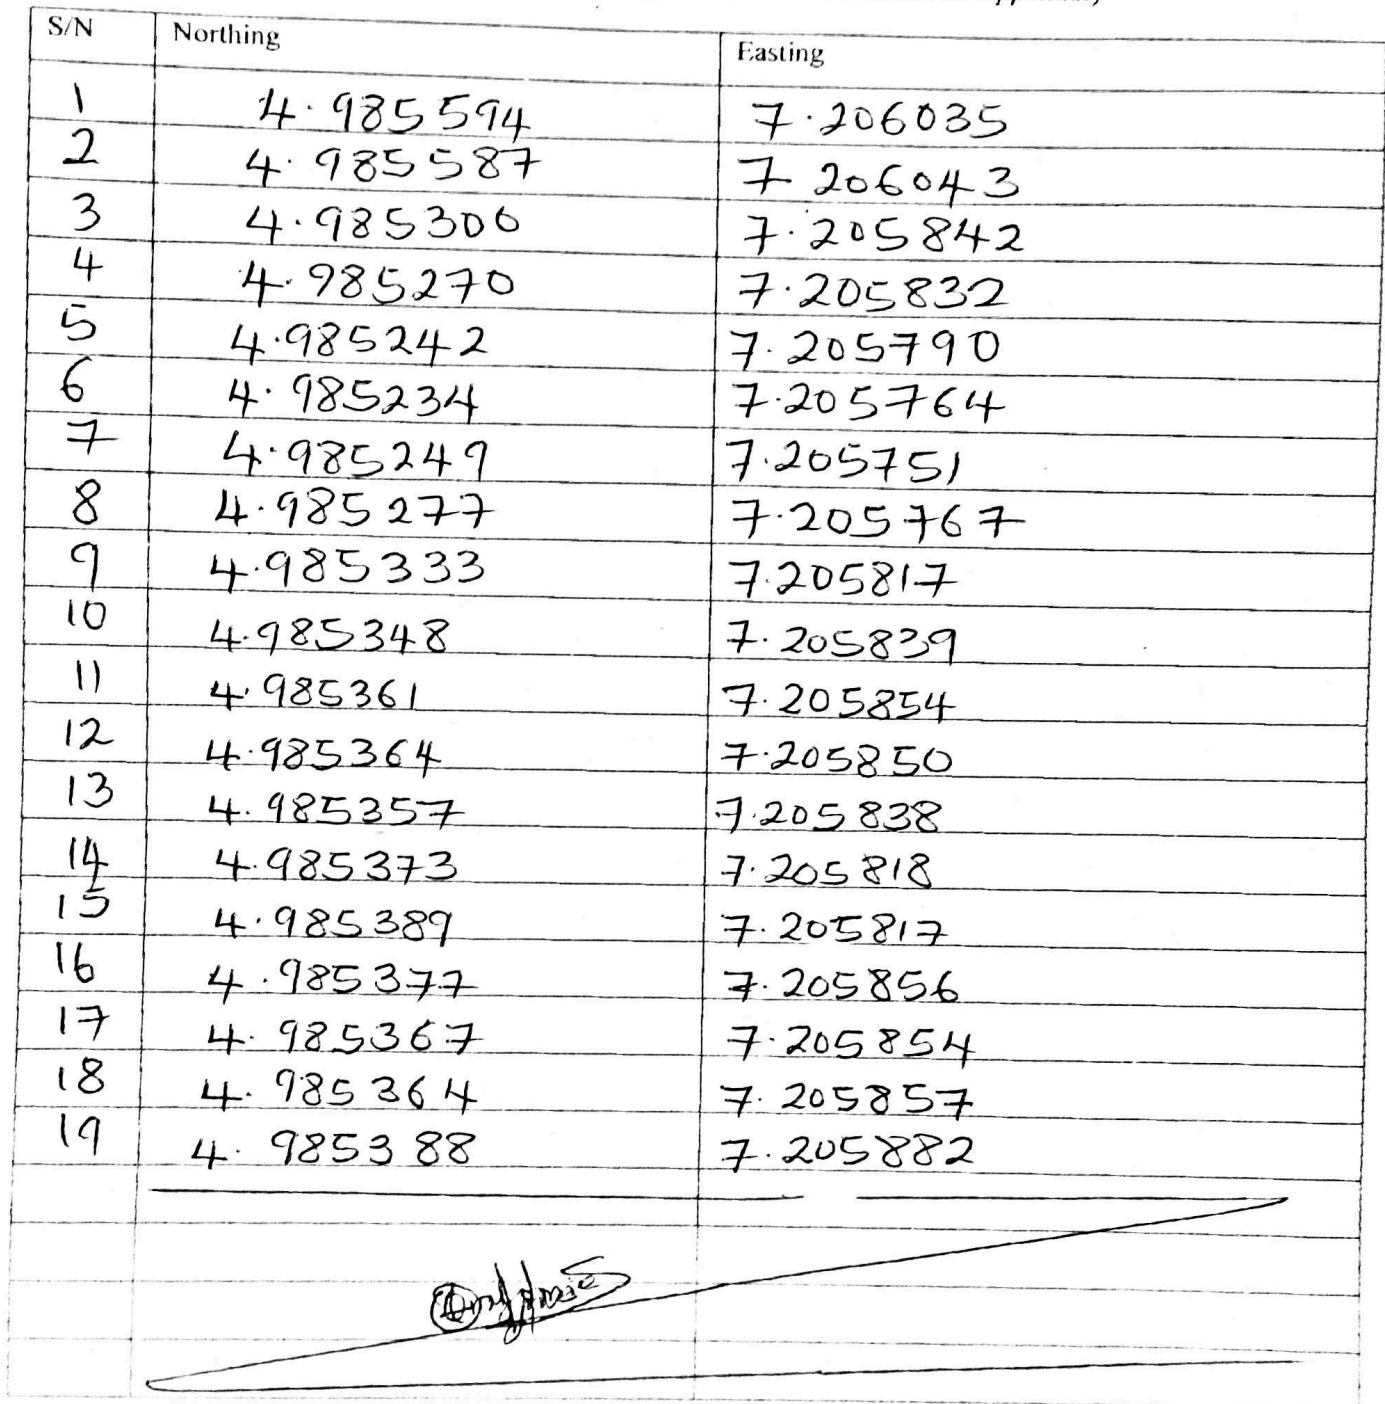 S/N Northing Easting
1 4.985594 7.206035
2 4.985587 7 206043
3 4.985306 7.205842
4 4.985270 7.205832
5 4.985242 7.205790
6 4.985234 7.205764
7 4.985249 7.205751
8 4.985277 7.205767
9 4.985333 7.205817
10 4.985348 7.205839
11 4.985361 7.205854
12 4.985364 7.205850
13 4.985357 7.205838
14 4.985373 7.205818
15 4.985389 7.205817
16 4.985377 7.205856
17 4.985367 7.205854
18 4.985364 7.205857
19 4.985388 7.205882